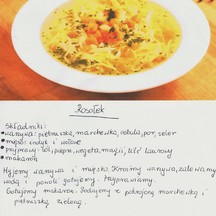 Rosołek
Składniki:
• warzywa: pietruszka, marchewka, cebula, por, seler
• mięso: indyk i wołowe
• przyprawy: sól, pieprz, vegeta, maggi, liść laurowy
• makaron
Myjemy warzywa i mięsko. Kroimy warzywa, zalewamy
wodą i powoli gotujemy. Przyprawiamy.
Gotujemy makaron. Podajemy z pokrojoną marchewką i
pietruszką zieloną.